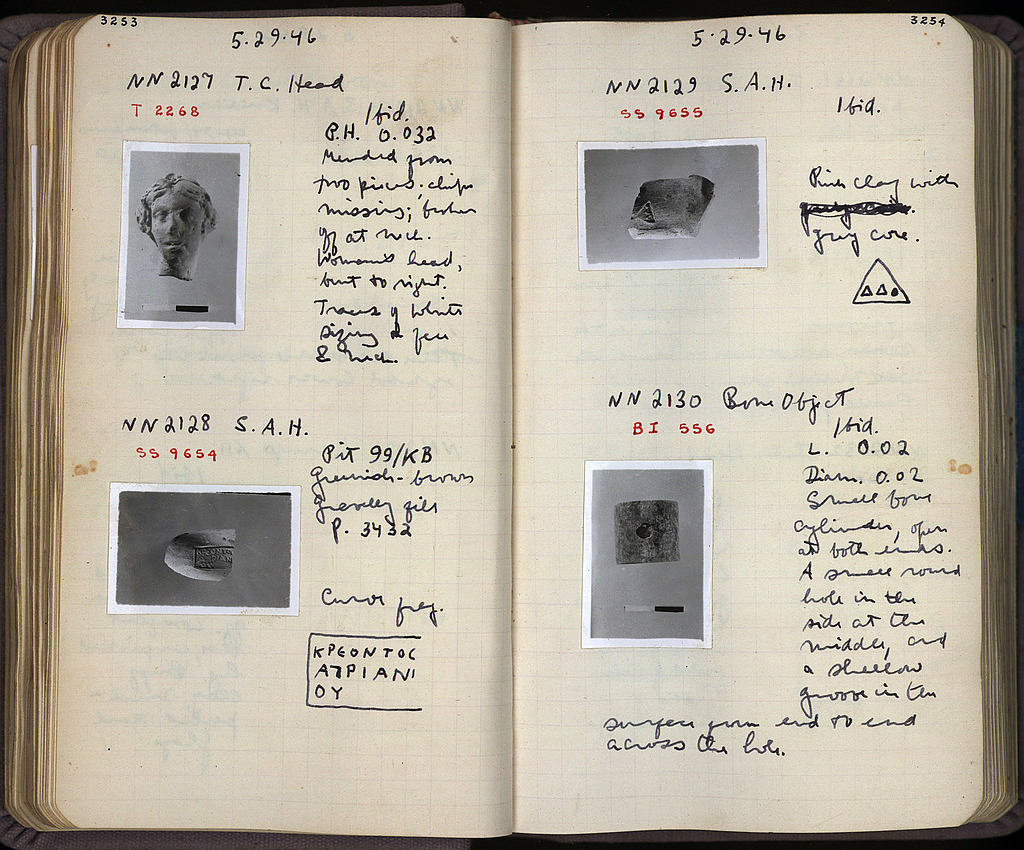 3253
5·29·46
NN 2127 T.C. Head
T 2268
Ibid.
P.H. 0.032
Mended from
two pieces; chips
missing; broken
off at neck.
Woman's head,
bent to right.
Traces of white
sizing on face
& neck.
NN 2128 S.A.H.
SS 9654
Pit 99/KB
Greenish-brown
gravelly fill
P. 3432
Curved frag.
ΚΡΕΟΝΤΟC
ΑΓΡΙΑΝΙ
ΟΥ
3254
5·29·46
NN 2129 S.A.H.
SS 9655
Ibid.
Pink clay with
gray core.
ΔΔ
NN 2130 Bone Object
BI 556
Ibid.
L. 0.02
Diam. 0.02
Small bone
cylinder, open
at both ends.
A small round
hole in the
side at the
middle, and
a shallow
groove in the
surface from end to end
across the hole.